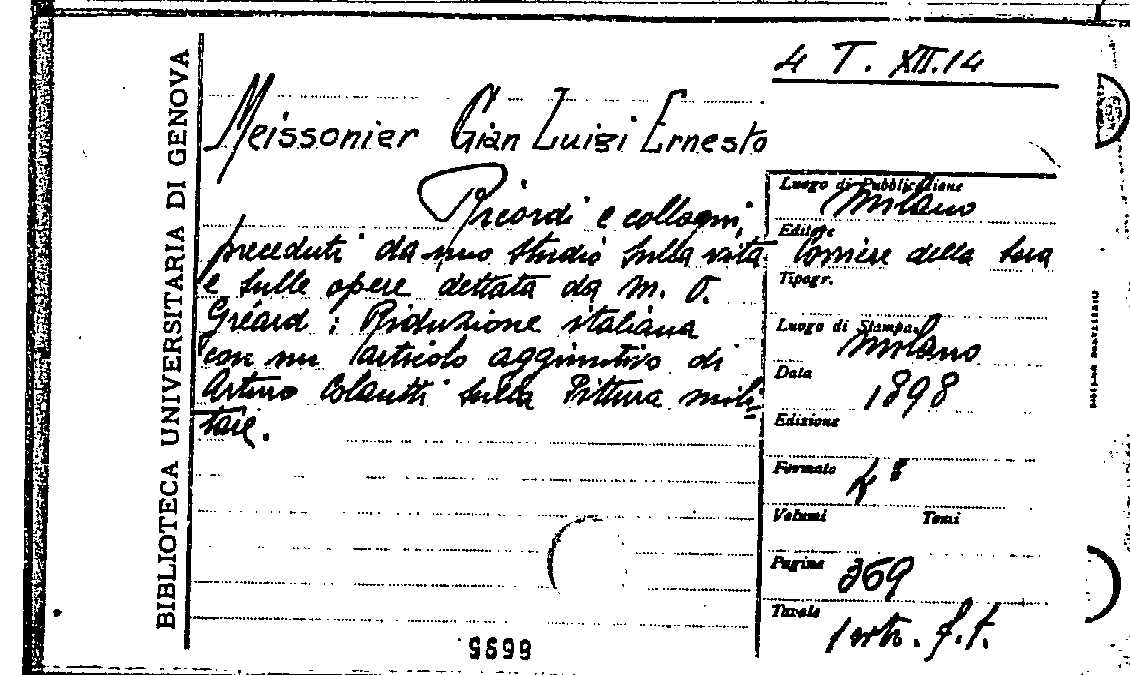 BIBLIOTECA UNIVERSITARIA DI GENOVA
4 T. XII.14
Meissonier Gian Luigi Ernesto
Ricordi e colloqui,
preceduti da uno studio sulla vita
e sulle opere dettata da M. O.
Gréard ; Riduzione italiana
con un articolo aggiuntivo di
Arturo Colautti sulla Pittura mili=
tare.
Luogo di Pubblicazione
Milano
Editore
Corriere della Sera
Tipogr.
Luogo di Stampa
Milano
Data
1898
Edizione
Formato 4°
Volumi Tomi
Pagine 369
Tavole
1 f.t.